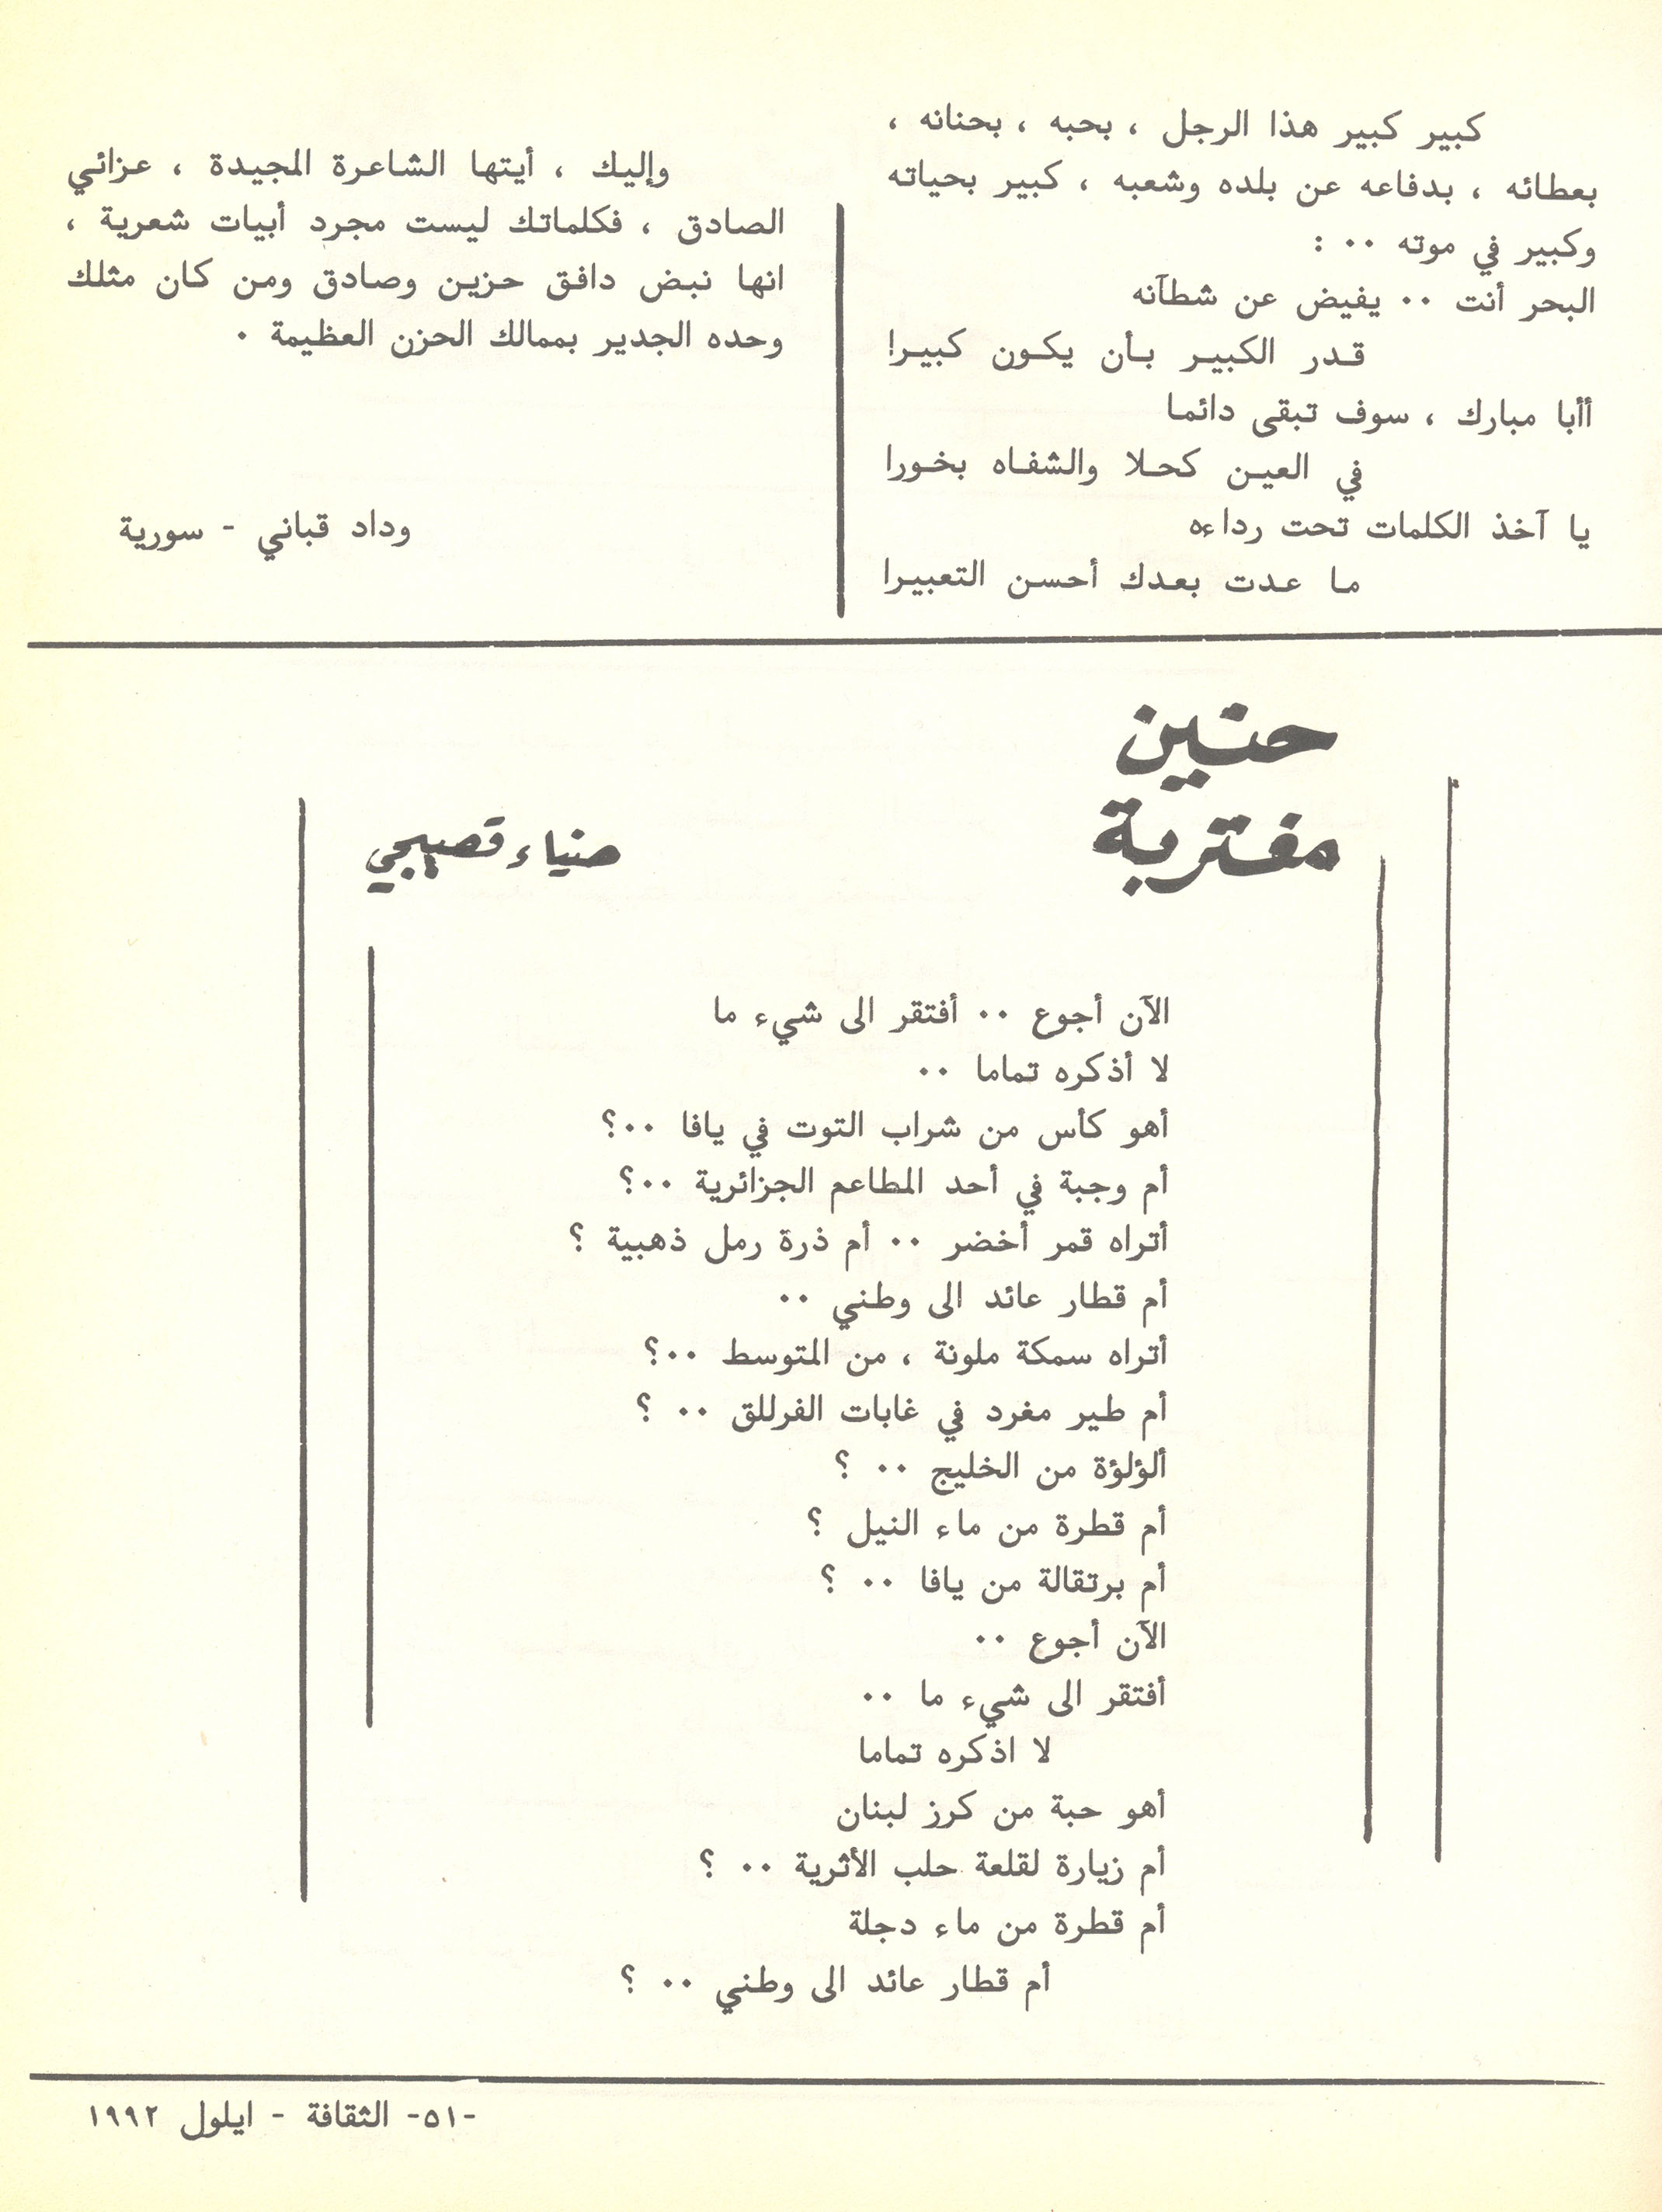 كبير كبير هذا الرجل ، بحبه ، بحنانه ،
بعطائه ، بدفاعه عن بلده وشعبه ، كبير بحياته
وكبير في موته ٠٠ :
البحر أنت ٠٠ يفيض عن شطآنه
قـدر الكبيـر بـأن يكـون كبيـرا!
أأبا مبارك ، سوف تبقى دائمـا
في العيـن كحـلا والشفـاه بخـورا
يا آخذ الكلمات تحت رداءه
مـا عـدت بعـدك أحسـن التعبيـرا
وإليك ، أيتها الشاعرة المجيدة ، عزائي
الصادق ، فكلماتك ليست مجرد أبيات شعرية ،
انها نبض دافق حزين وصادق ومن كان مثلك
وحده الجدير بممالك الحزن العظيمة ٠
وداد قباني - سورية
حنين
مغتربة
ضياء قصبجي
الآن أجوع ٠٠ أفتقر الى شيء ما
لا أذكره تماما ٠٠
أهو كأس من شراب التوت في يافا ٠٠؟
أم وجبة في أحد المطاعم الجزائرية ٠٠؟
أتراه قمر أخضر ٠٠ أم ذرة رمل ذهبية ؟
أم قطار عائد الى وطني ٠٠
أتراه سمكة ملونة ، من المتوسط ٠٠؟
أم طير مغرد في غابات الفرللق ٠٠ ؟
ألؤلؤة من الخليج ٠٠ ؟
أم قطرة من ماء النيل ؟
أم برتقالة من يافا ٠٠ ؟
الآن أجوع ٠٠
أفتقر الى شيء ما ٠٠
لا اذكره تماما
أهو حبة من كرز لبنان
أم زيارة لقلعة حلب الأثرية ٠٠ ؟
أم قطرة من ماء دجلة
أم قطار عائد الى وطني ٠٠ ؟
-٥١- الثقافة - ايلول ١٩٩٢